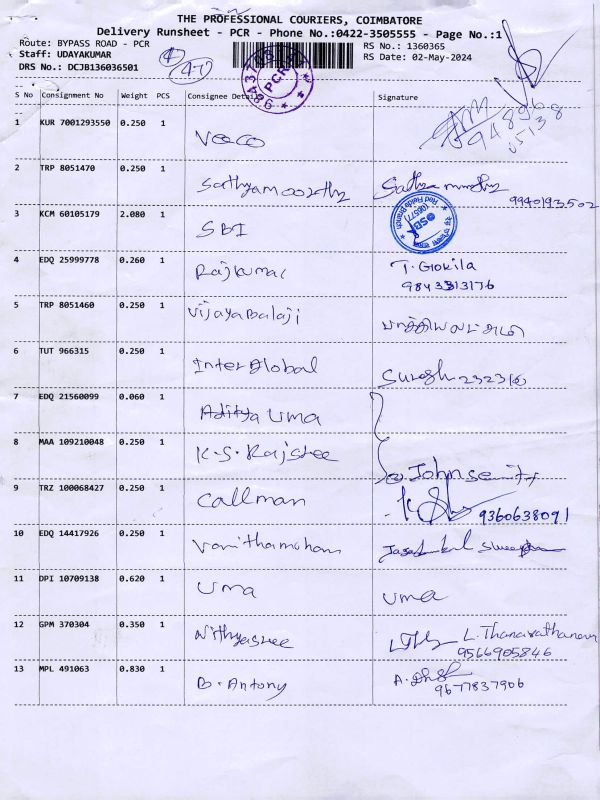 THE PROFESSIONAL COURIERS, COIMBATORE
Delivery Runsheet - PCR - Phone No.:0422-3505555 - Page No.:1
Route: BYPASS ROAD - PCR
Staff: UDAYAKUMAR
DRS No.: DCJB136036501
RS No.: 1360365
RS Date: 02-May-2024
S No Consignment No Weight PCS Consignee Details Signature
1 KUR 7001293550 0.250 1 Veeco
2 TRP 8051470 0.250 1 Sathyamoorthy Sathyamoorthy
9940193502
3 KCM 60105179 2.080 1 SBI
4 EDQ 25999778 0.260 1 Rajkumar T. Gokila
9843313176
5 TRP 8051460 0.250 1 Vijayabalaji
6 TUT 966315 0.250 1 Inter Global Suresh
7 EDQ 21560099 0.060 1 Aditya Uma
8 MAA 109210048 0.250 1 K.S. Rajshree
9 TRZ 100068427 0.250 1 Callman
9360638091
10 EDQ 14417926 0.250 1 Vanithamohan
11 DPI 10709138 0.620 1 Uma Uma
12 GPM 370304 0.350 1 Nithyasree
9566905846
13 MPL 491063 0.830 1 B. Antony
9677837906